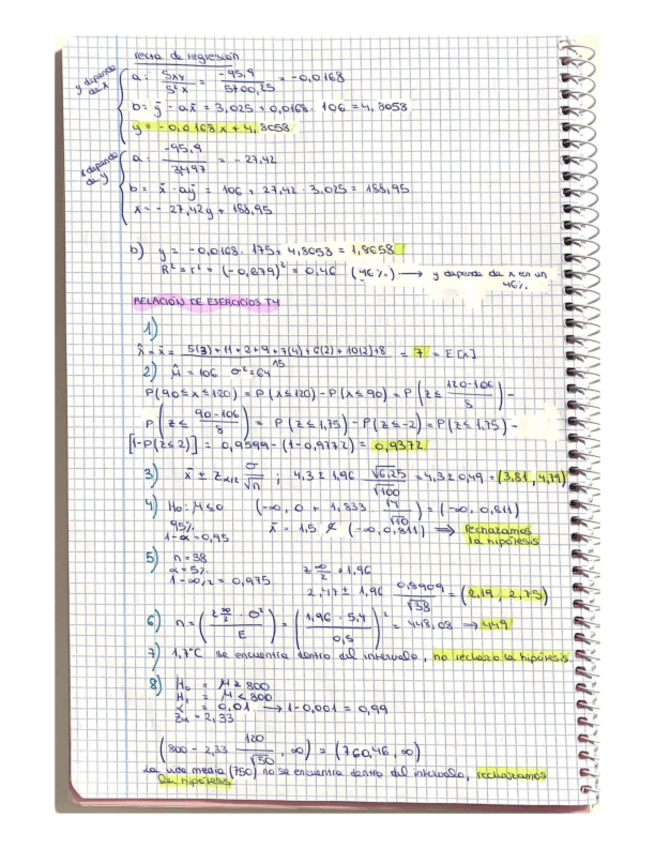 recta de regresión
y depende de x
a = Sxy / S²x = -95,9 / 5700,25 = -0,0168
b = ȳ - ax̄ = 3,025 + 0,0168 · 106 = 4,8058
y = -0,0168x + 4,8058
x depende de y
a = -95,9 / 3,497 = -27,42
b = x̄ - aȳ = 106 + 27,42 · 3,025 = 188,95
x = -27,42y + 188,95
b) y = -0,0168 · 175 + 4,8058 = 1,8658
R² = r² = (-0,679)² = 0,46 (46%) → y depende de x en un
46%.
RELACIÓN DE EJERCICIOS T4
1)
x̂ = x̄ = 5(3) + 11 + 2 + 9 + 7(4) + 6(2) + 10(2) + 8 / 15 = 7 = E[x]
2) μ̂ = 106 σ² = 64
P(90 ≤ x ≤ 120) = P(x ≤ 120) - P(x ≤ 90) = P(z ≤ 120-106 / 8) -
P(z ≤ 90-106 / 8) = P(z ≤ 1,75) - P(z ≤ -2) = P(z ≤ 1,75) -
[1-P(z ≤ 2)] = 0,9599 - (1-0,9772) = 0,9372
3) x̄ ± Zα/2 σ/√n ; 4,3 ± 1,96 √6,25 / √100 = 4,3 ± 0,49 = (3,81, 4,79)
4) H₀: μ ≤ 0 (-∞, 0 + 1,833 14/√10) = (-∞, 0,811)
95%
1-α = 0,95
x̄ = 1,5 ∉ (-∞, 0,811) ⟹ rechazamos
la hipótesis
5) n = 38
α = 5%
1-∞/2 = 0,975
z ∞/2 = 1,96
2,47 ± 1,96 0,8909 / √38 = (2,19, 2,75)
6) n = (z∞/2 · σ² / E) = (1,96 · 5,4 / 0,5)² = 448,08 → 449
7) 1,7°C se encuentra dentro del intervalo, no rechazo la hipótesis.
8) H₀ = μ ≥ 800
H₁ = μ < 800
α = 0,01 → 1-0,001 = 0,99
Zα = 2,33
(800 - 2,33 120/√50, ∞) = (760,46, ∞)
La vida media (750) no se encuentra dentro del intervalo, rechazamos
la hipótesis